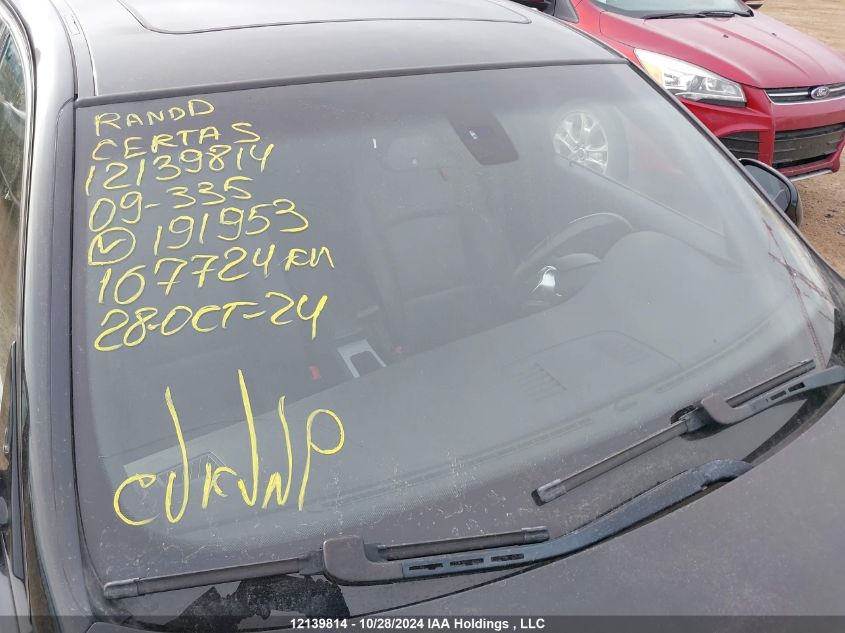 RANDD
CERTAS
12139814
09-335
191953
107724 KM
28-OCT-24
Ford
12139814 - 10/28/2024 IAA Holdings , LLC